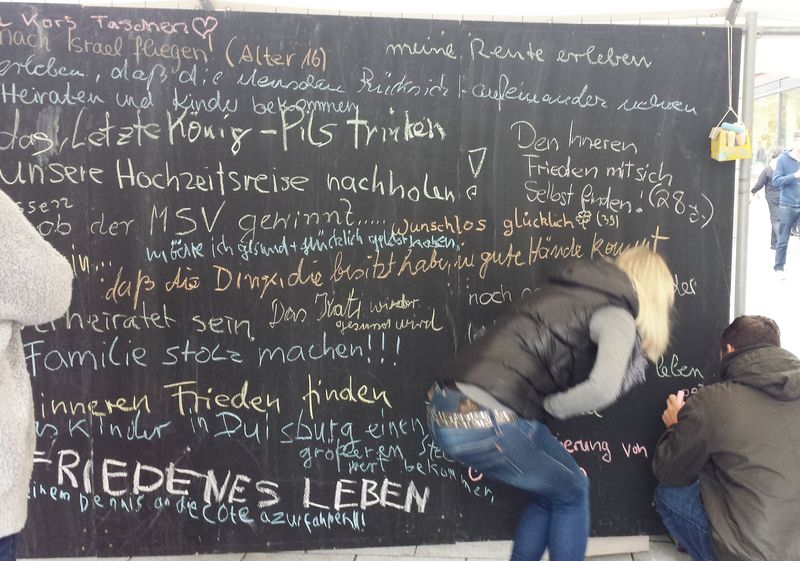 Kors Taschen
nach Israel fliegen! (Alter 16)
meine Rente erleben
erleben, daß die Menschen Rücksicht aufeinander nehmen
Heiraten und Kinder bekommen
das Letzte König-Pils trinken
Den Inneren
Frieden mit sich
Selbst finden! (28 J.)
unsere Hochzeitsreise nachholen!
ob der MSV gewinnt.....
wunschlos glücklich (35)
möchte ich gesund + glücklich gelebt haben.
in...
daß die Dinge, die ich besitzt habe, in gute Hände kommt
Das Kati wieder
gesund wird
noch
der
erheiratet sein
Familie stolz machen!!!
leben
inneren Frieden finden
Kinder in Duisburg einen
größeren
wert bekommen
erung von
FRIEDENES LEBEN
einem Dennis an die Cote azur fahren!!!